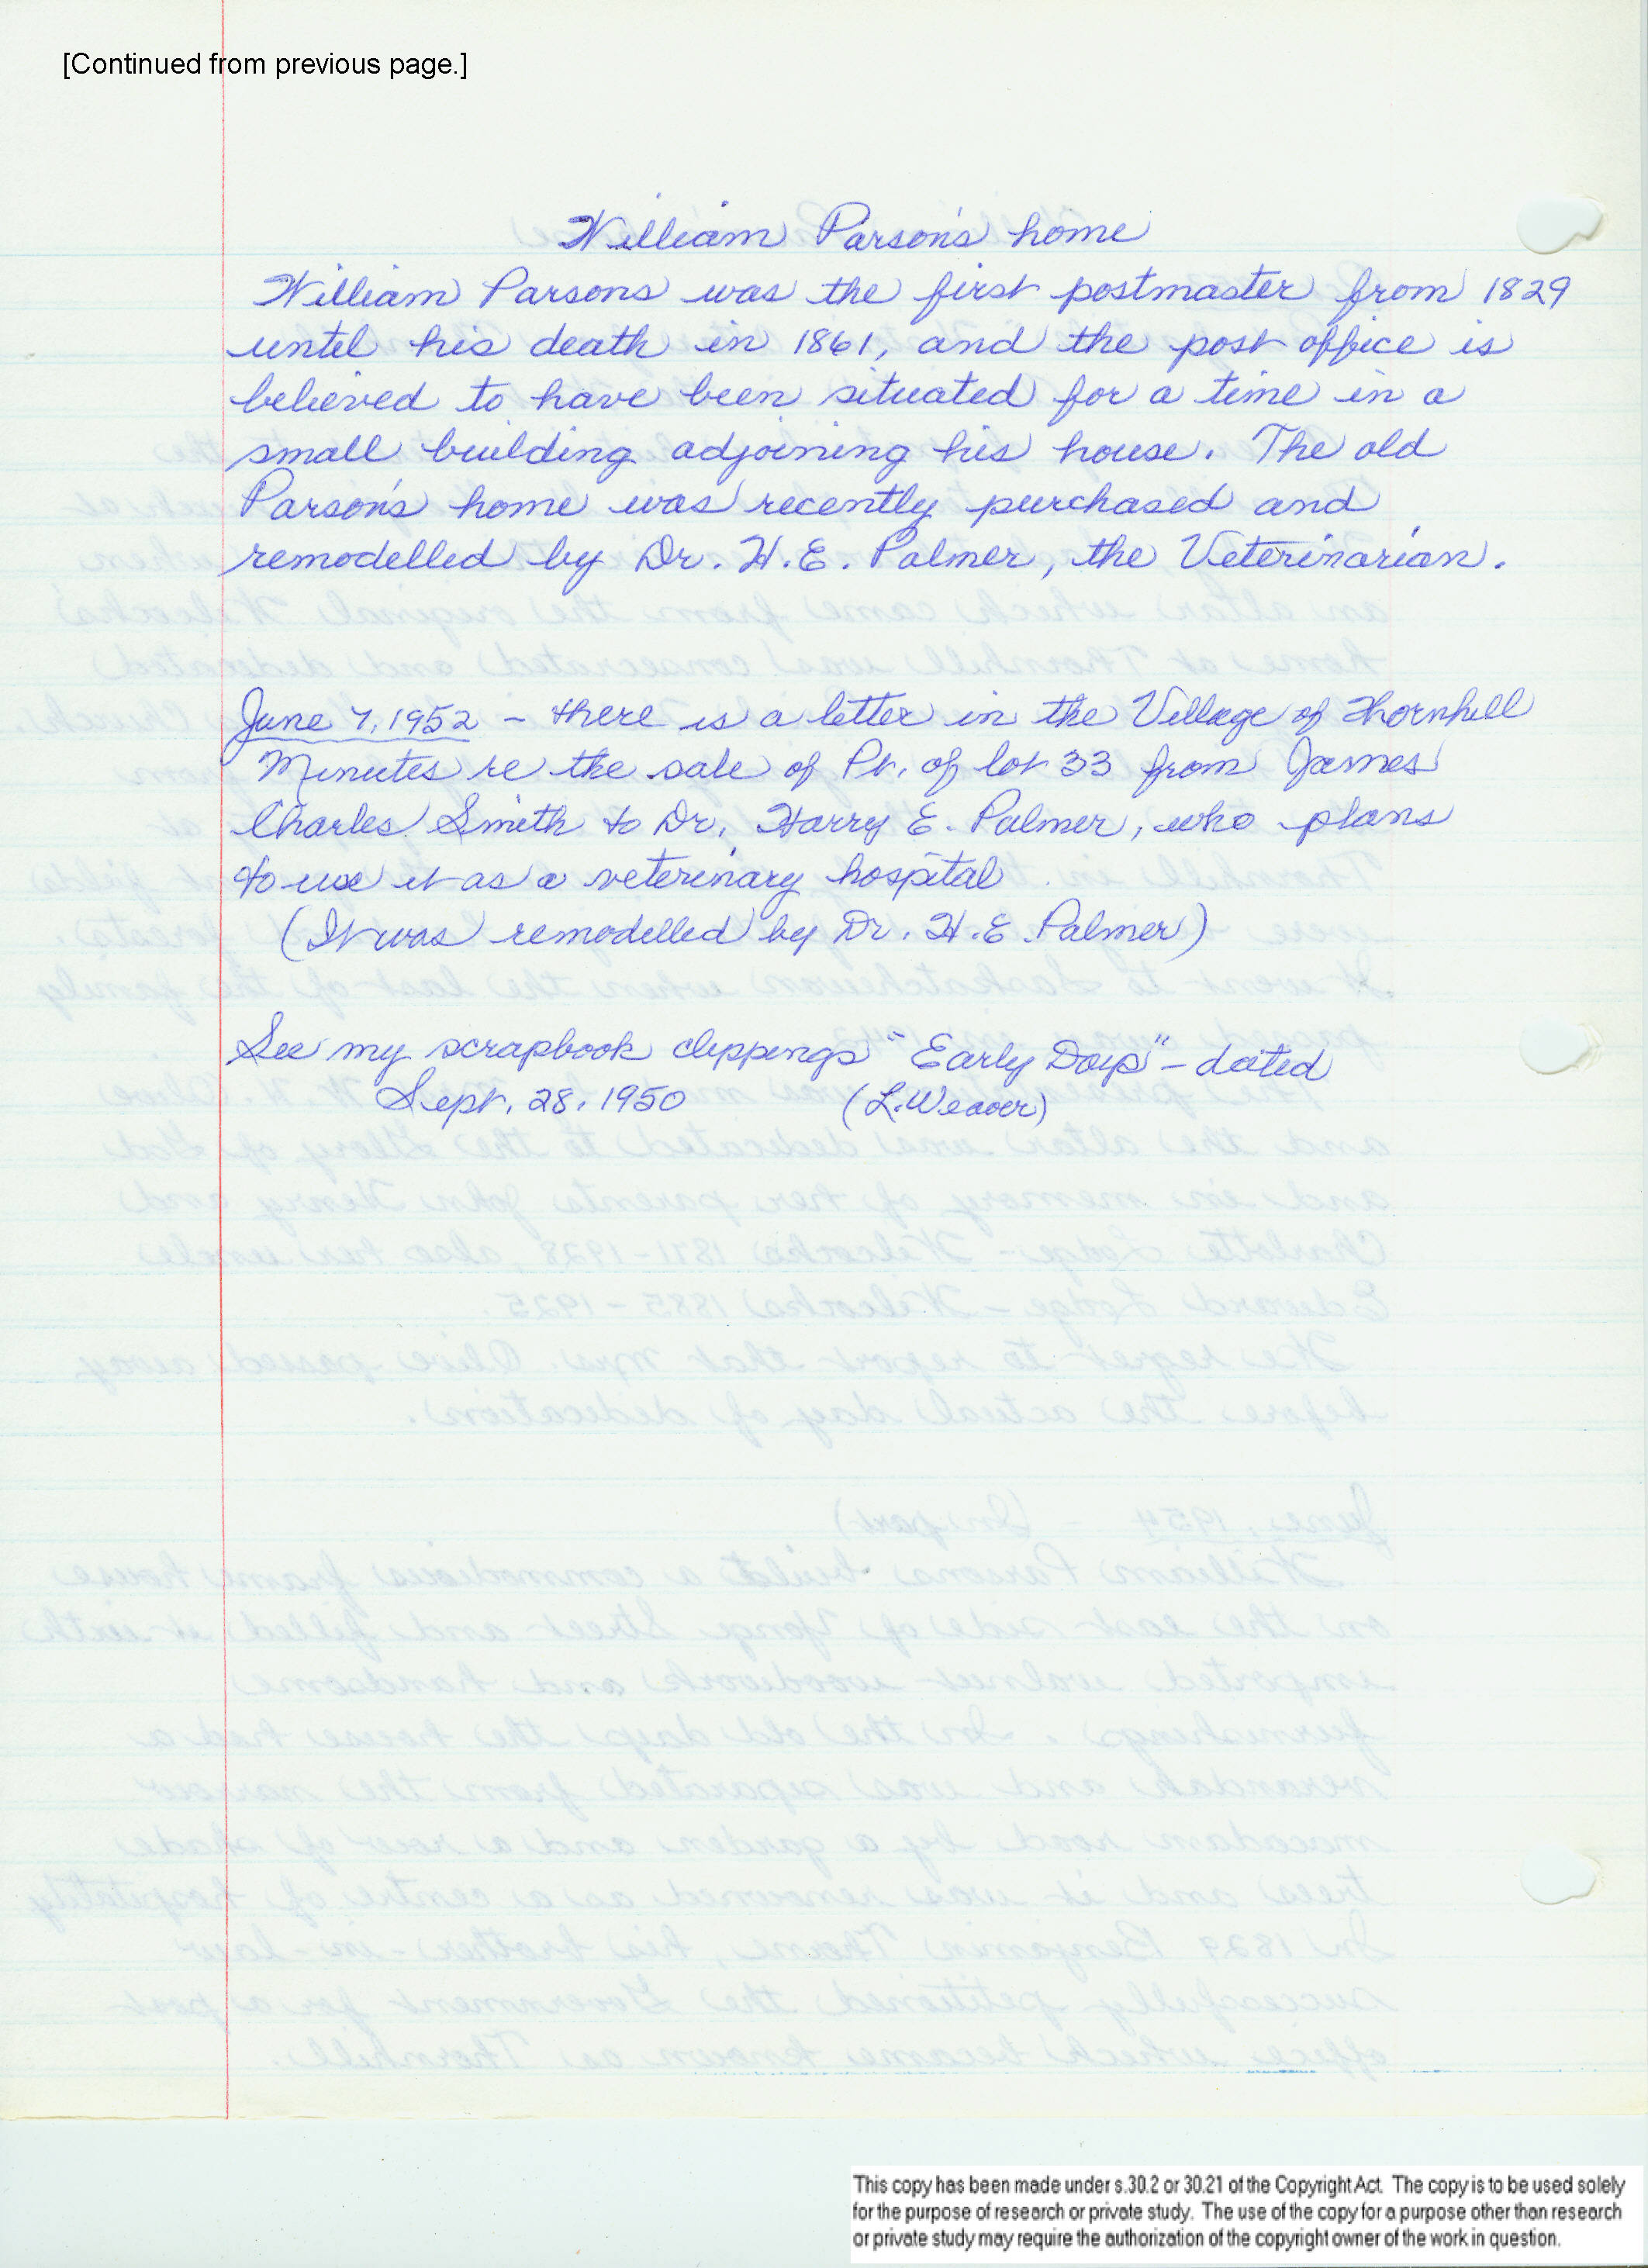 [Continued from previous page.]
William Parson's home
William Parsons was the first postmaster from 1829
until his death in 1861, and the post office is
believed to have been situated for a time in a
small building adjoining his house. The old
Parson's home was recently purchased and
remodelled by Dr. H.E. Palmer, the Veterinarian.
June 7, 1952 - there is a letter in the Village of Thornhill
Minutes re the sale of Pt. of lot 33 from James
Charles Smith to Dr. Harry E. Palmer, who plans
to use it as a veterinary hospital
(It was remodelled by Dr. H.E. Palmer)
See my scrapbook clippings "Early Days" - dated
Sept. 28, 1950 (L. Weaver)
This copy has been made under s.30.2 or 30.21 of the Copyright Act. The copy is to be used solely
for the purpose of research or private study. The use of the copy for a purpose other than research
or private study may require the authorization of the copyright owner of the work in question.